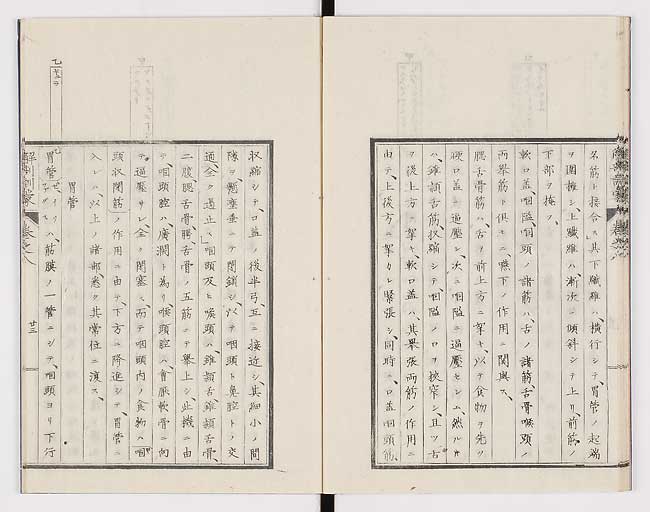 名筋ト接合ス其下纎維ハ、横行シテ、胃管ノ起端
ヲ圍擁シ、上纎維ハ、漸次ニ傾斜シテ上リ、前筋ノ
下部ヲ掩フ、
軟口盖、咽隘、咽頭ノ諸筋ハ、舌ノ諸筋、舌骨喉頭ノ
両挙筋ト倶ニ、嚥下ノ作用ニ関與ス、
腮舌骨筋ハ、舌ノ前上方ニ牽キ、以テ食物ヲ先ツ
硬口盖ニ過壓シ、次ニ咽隘ニ過壓セシム、然ルキ
ハ、錐頷舌筋、収縮シテ、咽隘ノ口ヲ狭窄シ、且ツ舌
ヲ後上方ニ牽キ、軟口盖ハ、其挙張両筋ノ作用ニ
由テ、上後方ニ牽カレ緊張シ、同時ニ、口盖咽頭筋、
収縮シテ、口盖ノ後半弓、互ニ接近シ、其細小ノ間
隙ヲ、懸壅垂ニテ閉鎖シ、以テ咽頭ト鼻腔トノ交
通、全ク遏止ス、咽頭及ヒ喉頭ハ、錐頷舌錐頷舌骨、
二腹腮舌骨腮舌骨ノ五筋ニテ挙上シ、此機ニ由
テ、咽頭腔ハ、廣濶ト為リ、喉頭腔ハ、會厭軟骨ニ向
テ過壓サレ、全ク閉塞ス、而テ咽頭内ノ食物ハ、咽
頭収閉筋ノ作用ニ由テ、下方ニ降進シテ胃管ニ
入レハ、以上ノ諸部、悉ク其常位ニ復ス、
胃管
胃管ハ、筋膜ノ一管ニシテ、咽頭ヨリ下行
解剖訓蒙
巻之八
廿三